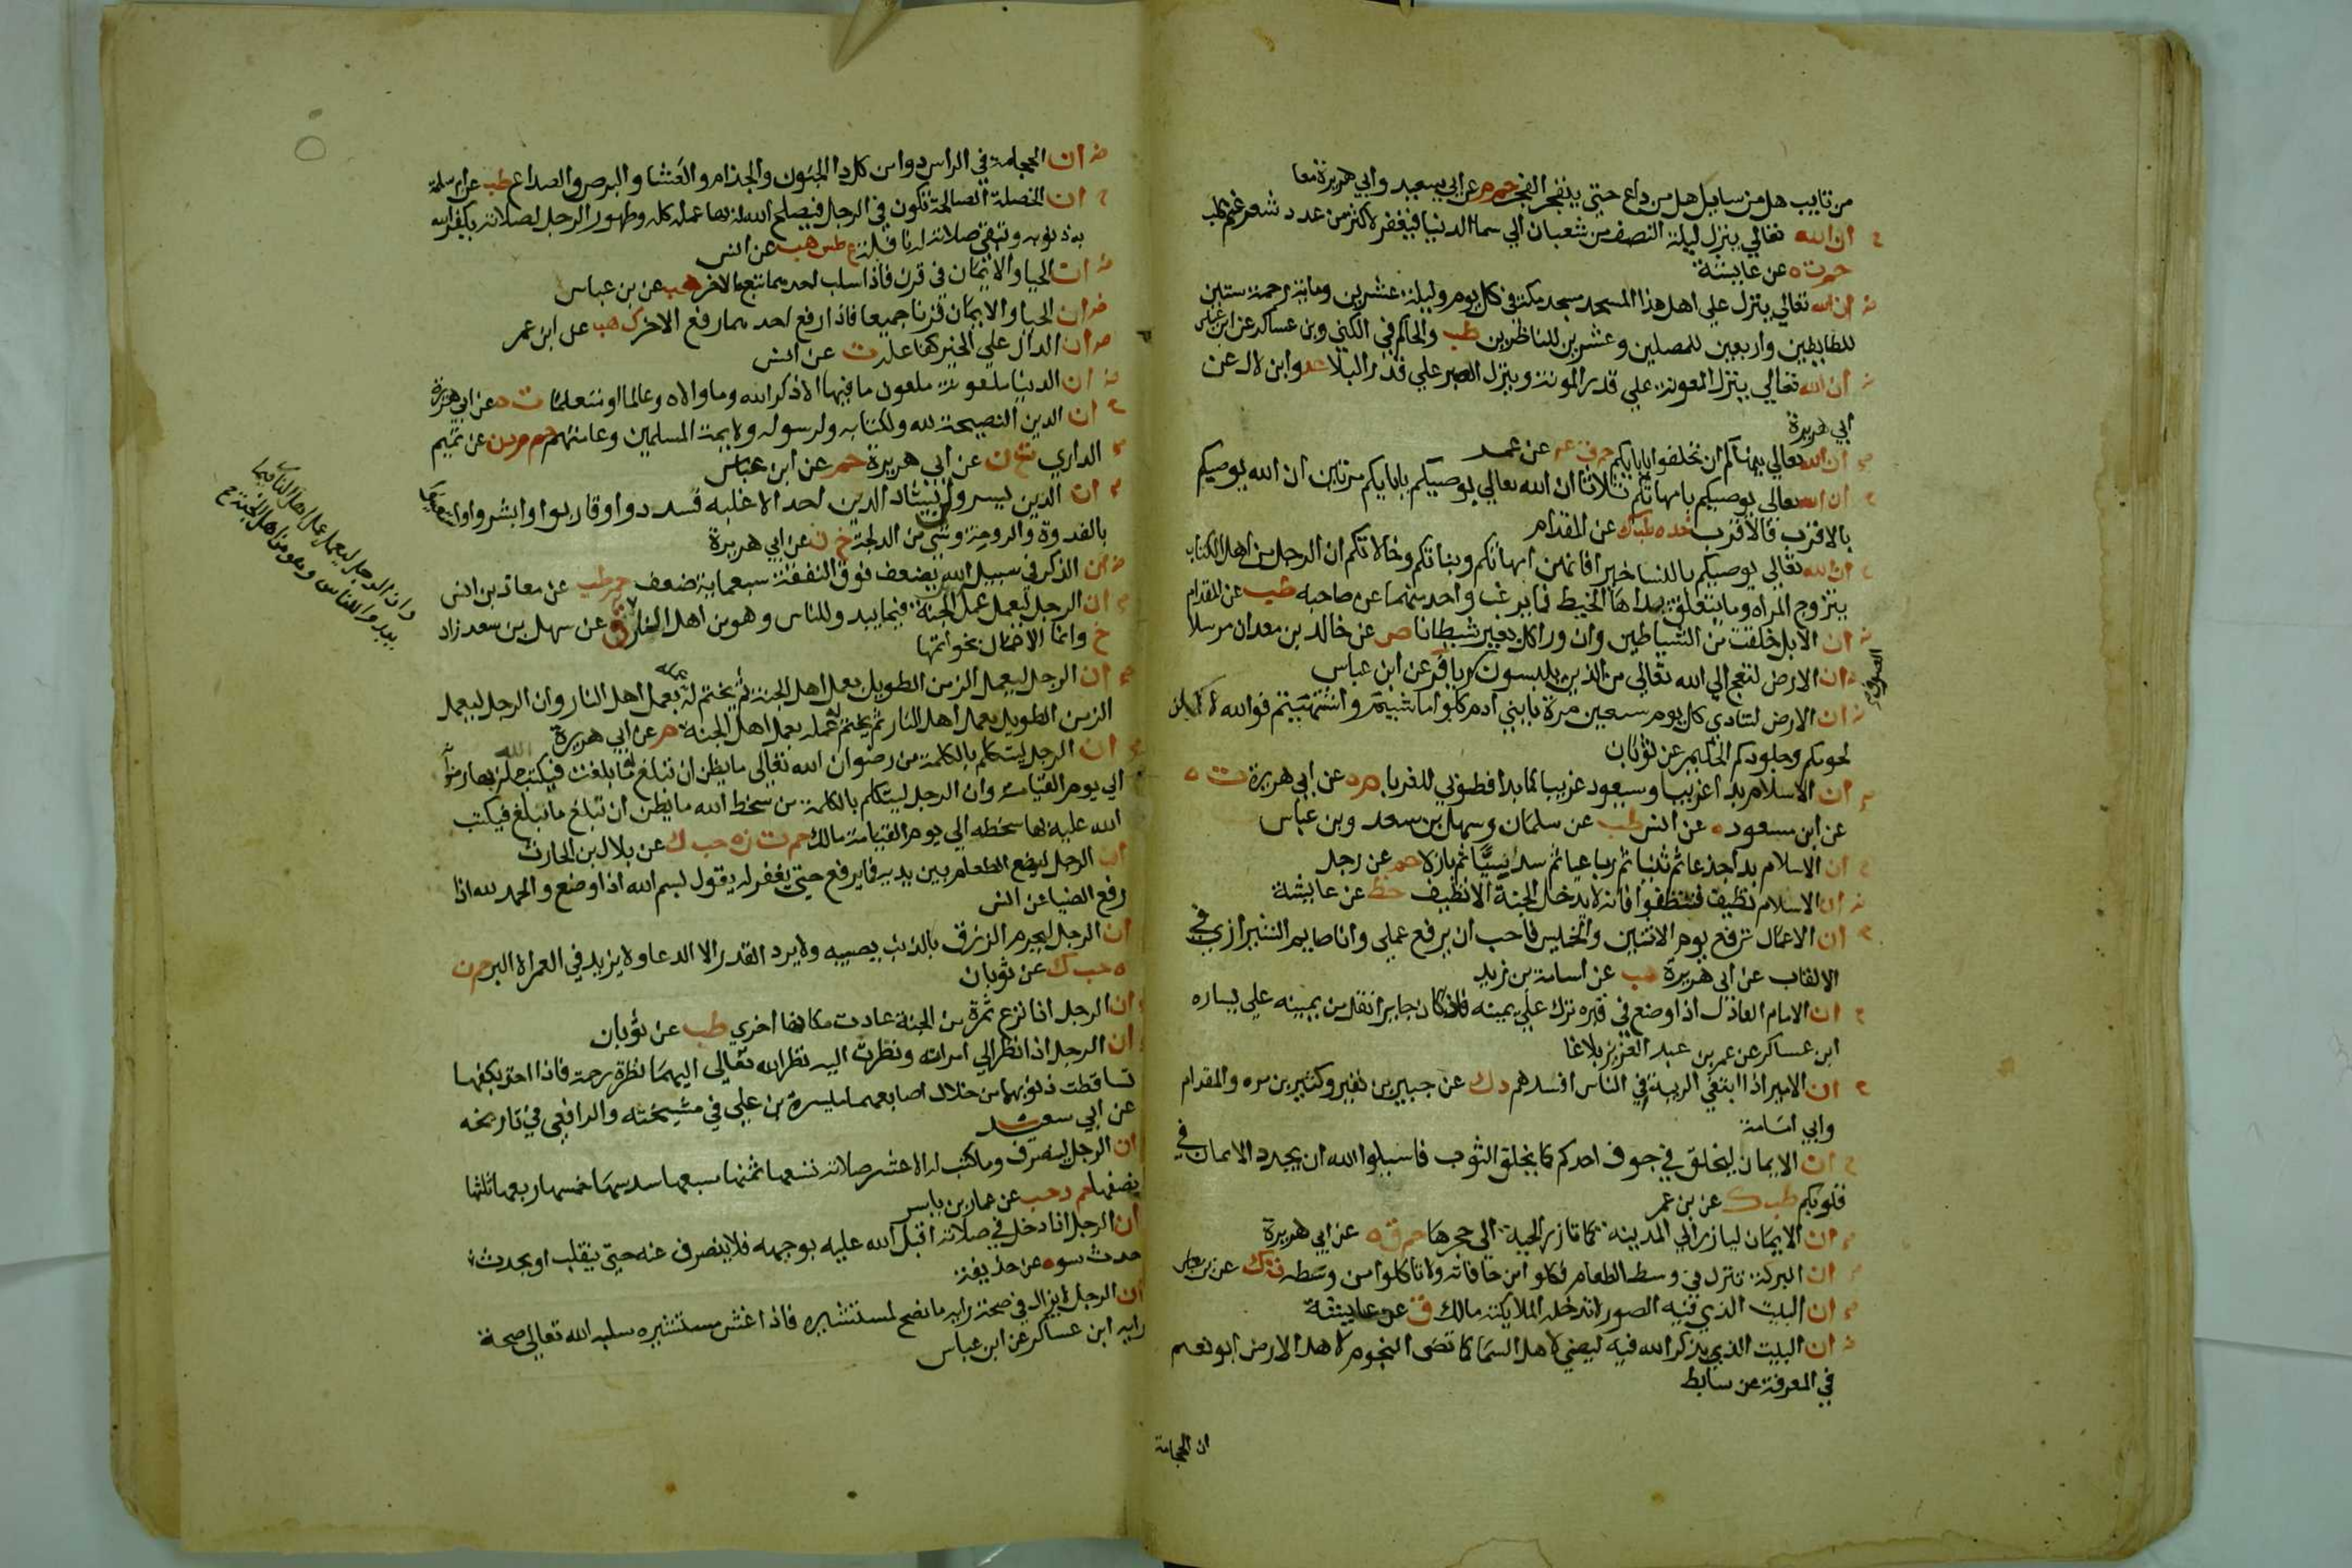 من تايب هل من سايل هل من داع حتى ينفجر الفجر حم م عن ابي سعيد وابي هريرة معا
ان الله تعالي ينزل ليلة النصف من شعبان الي سما الدنيا فيغفر لاكثر من عدد شعر غنم كلب
حم ت ه عن عايشة
ان الله تعالي ينزل علي اهل هذا المسجد مسجد مكة في كل يوم وليلة عشرين وماية رحمة ستين
للطايفين واربعين للمصلين وعشرين للناظرين طب والحاكم في الكني وبن عساكر عن ابن عباس
ان الله تعالي ينزل المعونة علي قدر المونة وينزل الصبر علي قدر البلا عد وابن لال عن
ابي هريرة
ان الله تعالي ينهاكم ان تحلفوا بابايكم حم ق عه عن عمر
ان الله تعالي يوصيكم بامهاتكم ثلاثا ان الله تعالي يوصيكم بابايكم مرتين ان الله يوصيكم
بالاقرب فالاقرب خد ه طب ك عن المقدام
ان الله تعالي يوصيكم بالنسا خيرا فانهن امهاتكم وبناتكم وخالاتكم ان الرجل من اهل الكتاب
يتزوج المراه وما يتعلق يداها الخيط فما يرغب واحد منهما عن صاحبه طب عن المقدام
ان الابل خلقت من الشياطين وان ورا كل بعير شيطانا ص عن خالد بن معدان مرسلا
ان الارض لتعج الي الله تعالي من الذين يلبسون الصوف ريا فر عن ابن عباس
ان الارض لتنادي كل يوم سبعين مرة يا بني ادم كلوا ما شيتم واشتهيتم فوالله لاكلن
لحومكم وجلودكم الحكيم عن ثوبان
ان الاسلام بدا غريبا وسيعود غريبا كما بدا فطوبي للغربا م ه عن ابي هريرة ت ه
عن ابن مسعود ه عن انس طب عن سلمان وسهل بن سعد وبن عباس
ان الاسلام بدا جذعا ثم ثنيا ثم رباعيا ثم سديسيا ثم بازلا حم عن رجل
ان الاسلام نظيف فتنظفوا فانه لا يدخل الجنة الا نظيف خط عن عايشة
ان الاعمال ترفع يوم الاثنين والخميس فاحب ان يرفع عملي وانا صايم الشيرازي في
الالقاب عن ابي هريرة هب عن اسامة بن زيد
ان الامام العادل اذا وضع في قبره ترك علي يمينه فاذا كان جايرا نقل من يمينه علي يساره
ابن عساكر عن عمر بن عبد العزيز بلاغا
ان الامير اذا ابتغي الريبة في الناس افسدهم د ك عن جبير بن نفير وكثير بن مره والمقدام
وابي امامة
ان الايمان ليخلق في جوف احدكم كما يخلق الثوب فاسيلوا الله ان يجدد الايمان في
قلوبكم طب ك عن بن عمر
ان الايمان ليازر الي المدينة كما تازر الحية الي جحرها حم ق ه عن ابي هريرة
ان البركة تنزل في وسط الطعام فكلوا من حافاته ولا تاكلوا من وسطه ت ك عن بن عباس
ان البيت الذي فيه الصور لا تدخله الملايكة مالك ق عن عايشة
ان البيت الذي يذكر الله فيه ليضي لاهل السما كما تضي النجوم لاهل الارض ابو نعيم
في المعرفة عن سابط
ان الحجامة
ان الحجامة في الراس دوا من كل دا الجنون والجذام والعشا والبرص والصداع طب عن ام سلمة
ان الخصلة الصالحة تكون في الرجل فيصلح الله له بها عمله كله وطهور الرجل لصلاته يكفر الله
به ذنوبه وتبقي صلاته له نافلة ع طس هب عن انس
ان الحيا والايمان في قرن فاذا سلب احدهما تبعه الاخر هب عن بن عباس
ان الحيا والايمان قرنا جميعا فاذا رفع احدهما رفع الاخر ك هب عن ابن عمر
ان الدال علي الخير كفاعله ت عن انس
ان الدنيا ملعونة ملعون ما فيها الا ذكر الله وما والاه وعالما او متعلما ت ه عن ابي هريرة
ان الدين النصيحة لله ولكتابه ولرسوله ولايمة المسلمين وعامتهم حم م د ن عن تميم
الداري ت ن عن ابي هريرة حم عن ابن عباس
ان الدين يسر ولن يشاد الدين احد الا غلبه فسددوا وقاربوا وابشروا واستعينوا
بالغدوة والروحة وشي من الدلجة خ ن عن ابي هريرة
ان الذكر في سبيل الله يضعف فوق النفقة سبعماية ضعف حم طب عن معاذ بن انس
ان الرجل ليعمل عمل الجنة فيما يبدو للناس وهو من اهل النار ق عن سهل بن سعد زاد
خ وانما الاعمال بخواتمها
وان الرجل ليعمل عمل اهل النار فيما
يبدو للناس وهو من اهل الجنة صح
ان الرجل ليعمل الزمن الطويل بعمل اهل الجنة ثم يختم له عمله بعمل اهل النار وان الرجل ليعمل
الزمن الطويل بعمل اهل النار ثم يختم عمله بعمل اهل الجنة م عن ابي هريرة
ان الرجل ليتكلم بالكلمة من رضوان الله تعالي ما يظن ان تبلغ ما بلغت فيكتب الله له بها رضوانه
الي يوم القيامة وان الرجل ليتكلم بالكلمة من سخط الله ما يظن ان تبلغ ما تبلغ فيكتب
الله عليه بها سخطه الي يوم القيامة مالك حم ت ن ه حب ك عن بلال بن الحارث
ان الرجل ليضع الطعام بين يديه فما يرفع حتي يغفر له يقول بسم الله اذا وضع والحمد لله اذا
رفع الضيا عن انس
ان الرجل ليحرم الرزق بالذنب يصيبه ولا يرد القدر الا الدعا ولا يزيد في العمر الا البر حم ن
ه حب ك عن ثوبان
ان الرجل اذا نزع ثمرة من الجنة عادت مكانها اخري طب عن ثوبان
ان الرجل اذا نظر الي امراته ونظرت اليه نظر الله تعالي اليهما نظرة رحمة فاذا اخذ بكفها
تساقطت ذنوبهما من خلال اصابعهما ميسرة بن علي في مشيخته والرافعي في تاريخه
عن ابي سعيد
ان الرجل لينصرف وما كتب له الا عشر صلاته تسعها ثمنها سبعها سدسها خمسها ربعها ثلثها
نصفها حم د حب عن عمار بن ياسر
ان الرجل اذا دخل في صلاته اقبل الله عليه بوجهه فلا ينصرف عنه حتي ينقلب او يحدث
حدث سو ه عن حذيفة
ان الرجل لا يزال في صحة رايه ما نصح لمستشيره فاذا غش مستشيره سلبه الله تعالي صحة
رايه ابن عساكر عن ابن عباس